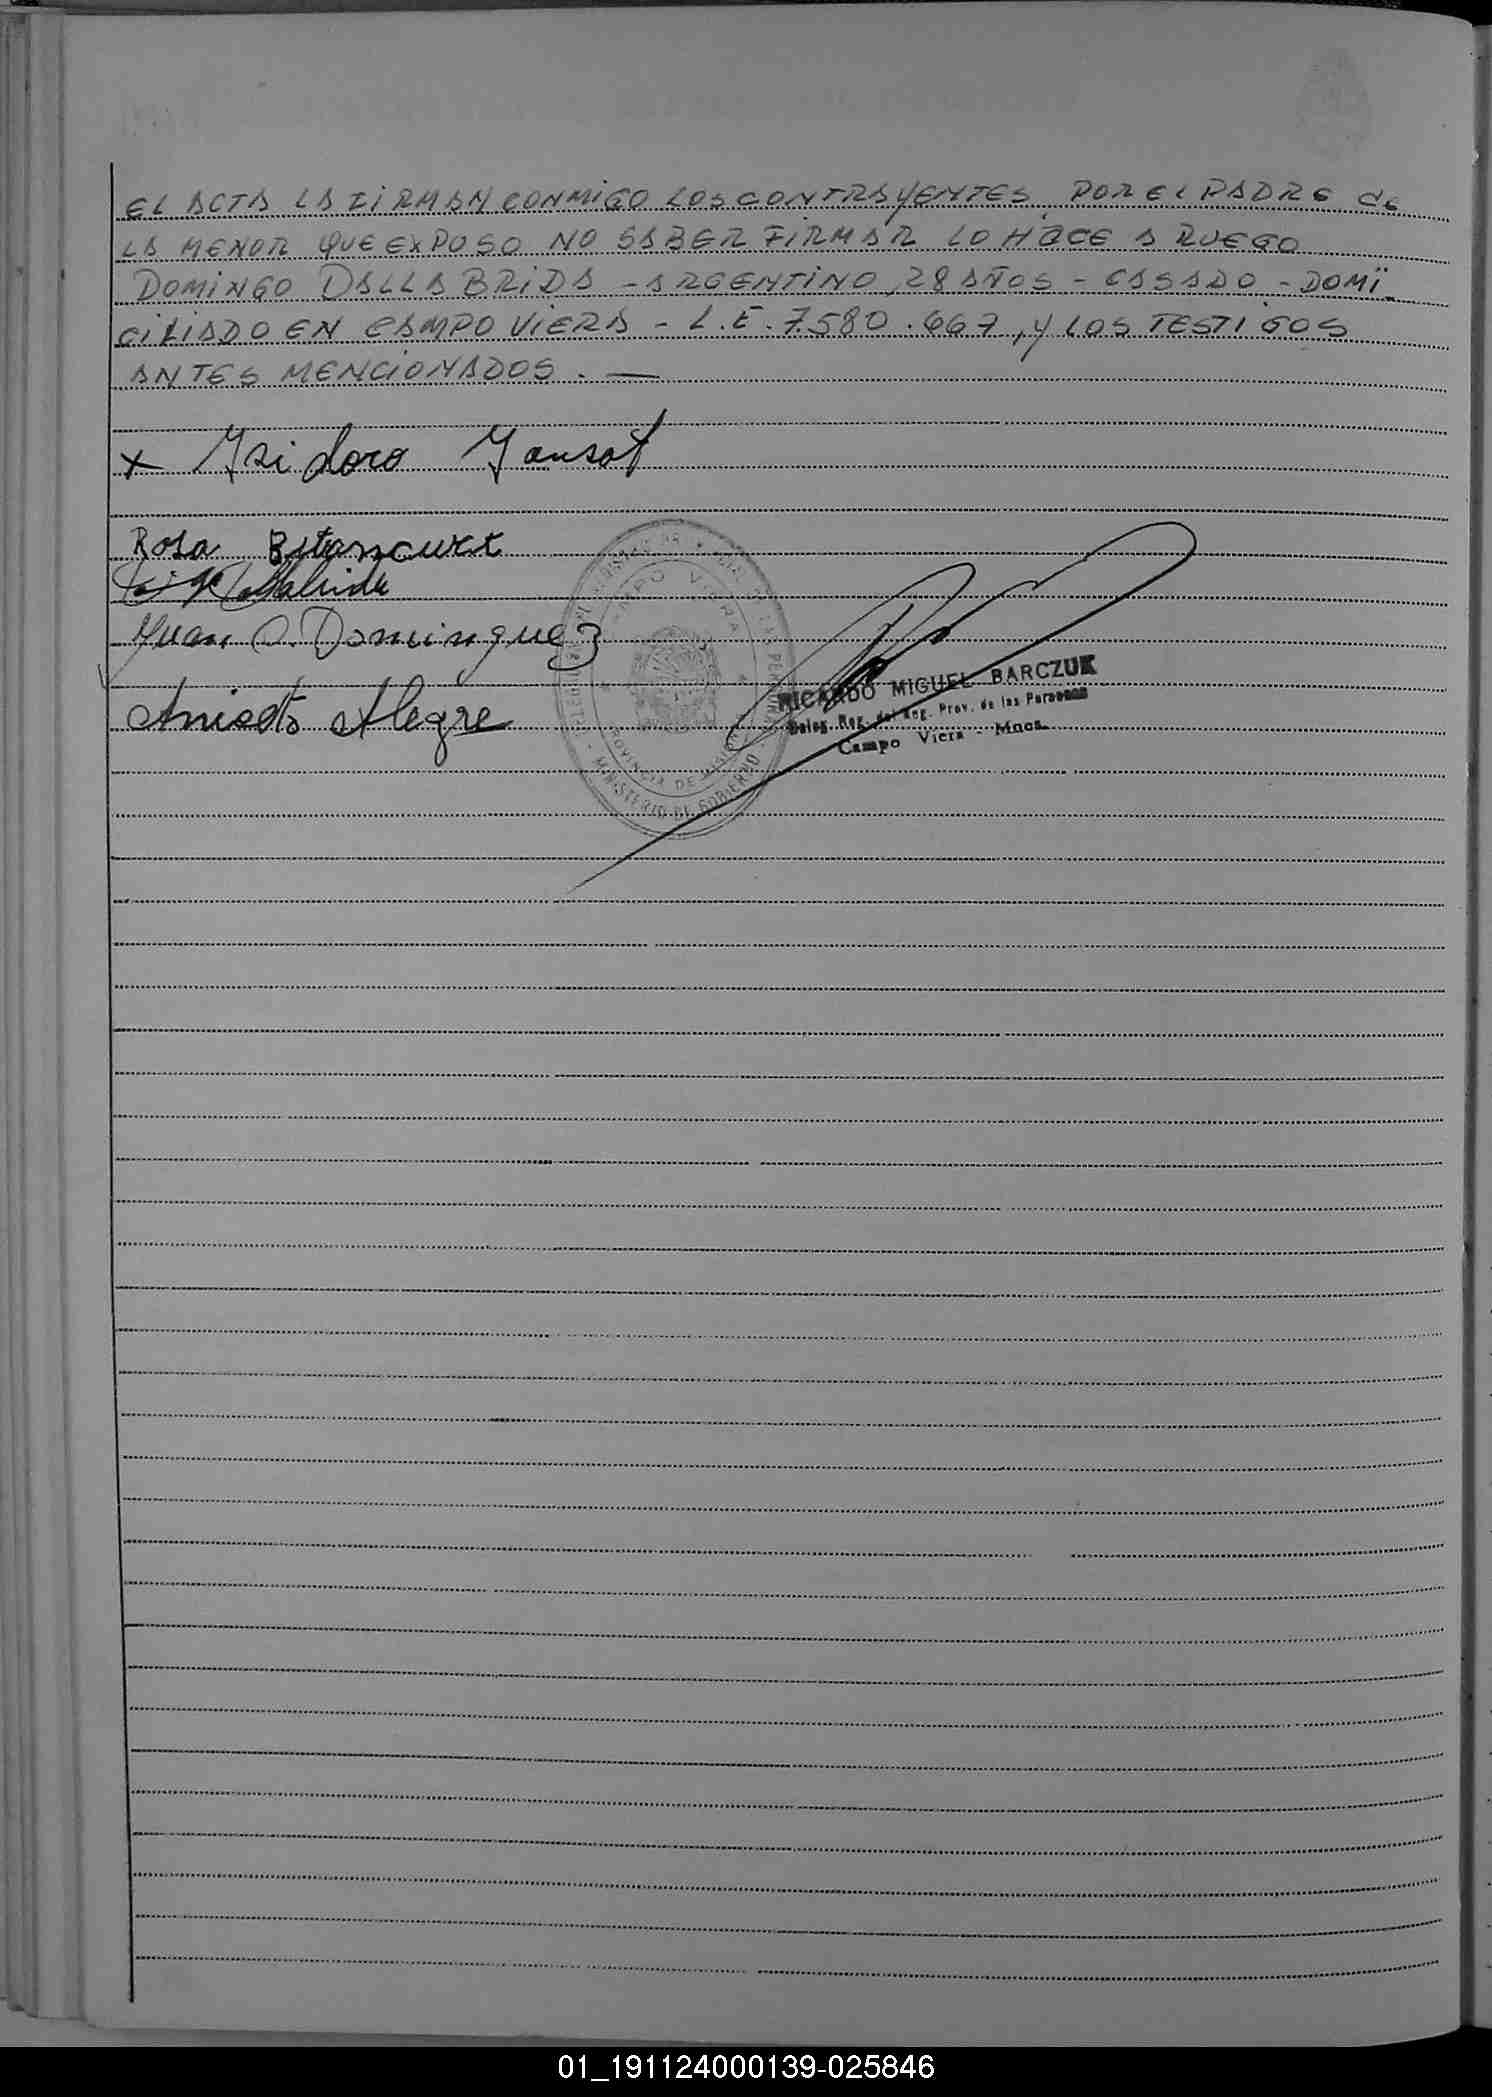 EL ACTA LA FIRMAN CONMIGO LOS CONTRAYENTES, POR EL PADRE de
LA MENOR QUE EXPUSO NO SABER FIRMAR LO HACE A RUEGO
DOMINGO DALLA BRIDA - ARGENTINO, 28 AÑOS - CASADO - DOMI
CILIADO EN CAMPO VIERA - L.E. 7.580.667, y LOS TESTIGOS
ANTES MENCIONADOS. —
x Isidoro Yansat
Rosa Betancurt
Juan O. Dominguez
Aniceto Alegre
CAMPO VIERA
PROVINCIA DE MISIONES
MINISTERIO DE GOBIERNO
RICARDO MIGUEL BARCZUK
Deleg. Reg. del Reg. Prov. de las Personas
Campo Viera - Mnes.
01_191124000139-025846